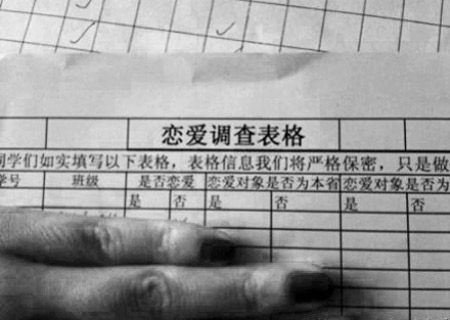 恋爱调查表格
同学们如实填写以下表格，表格信息我们将严格保密，只是做
学号 班级 是否恋爱 恋爱对象是否为本省 恋爱对象是否为
是 否 是 否 是 否